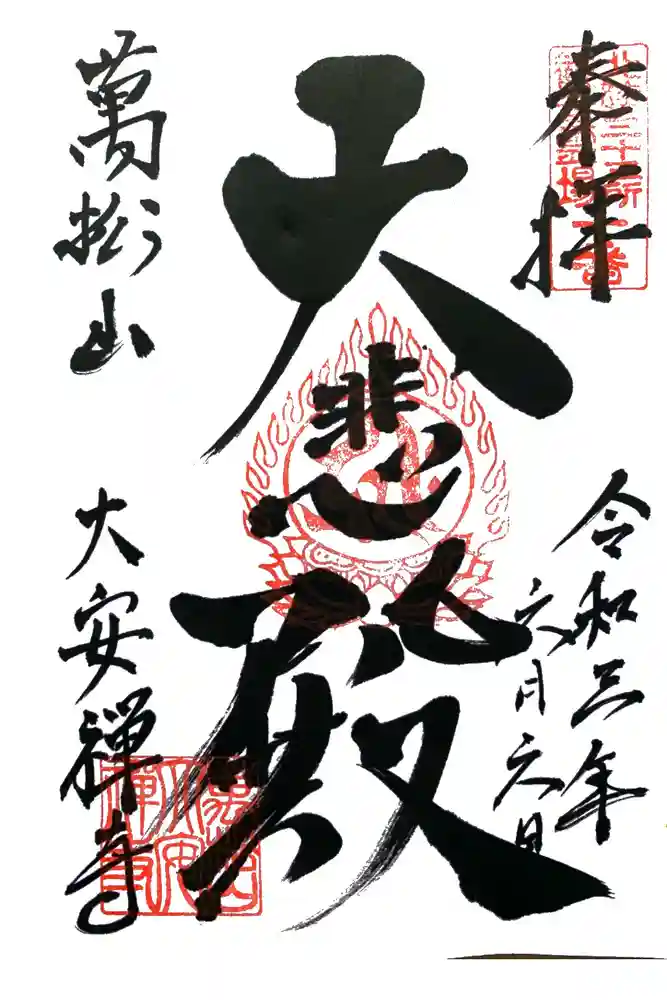 奉拝
令和三年
六月六日
大悲殿
萬松山
大安禅寺